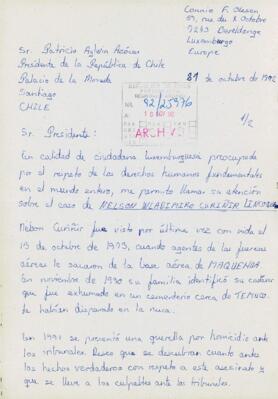 Connie F. Olesen
59, rue du X Octobre
7243 Bereldange
Luxemburgo
Europe
Sr. Patricio Aylwin Azócar
Presidente de la República de Chile
Palacio de la Moneda
Santiago
CHILE
31 de octubre de 1992
NR. 92/25976
A: 10 NOV 92
1/2
ARCHIV.
Sr. Presidente:
En calidad de ciudadana luxemburguesa preocupada
por el respeto de los derechos humanos fundamentales
en el mundo entero, me permito llamar su atención
sobre el caso de NELSON WLADIMIRO CURIÑIR LINCOQUEO
Nelson Curiñir fue visto por última vez con vida el
15 de octubre de 1973, cuando agentes de las fuerzas
aéreas le sacaron de la base aérea de MAQUEHUA.
En noviembre de 1990 su familia identificó su cadáver
que fue exhumado en un cementerio cerca de TEMUCO.
Le habían disparado en la nuca.
En 1991 se presentó una querella por homicidio ante
los tribunales. Deseo que se descubran cuanto antes
los hechos verdaderos con respeto a este asesinato y
que se lleve a los culpables ante los tribunales.